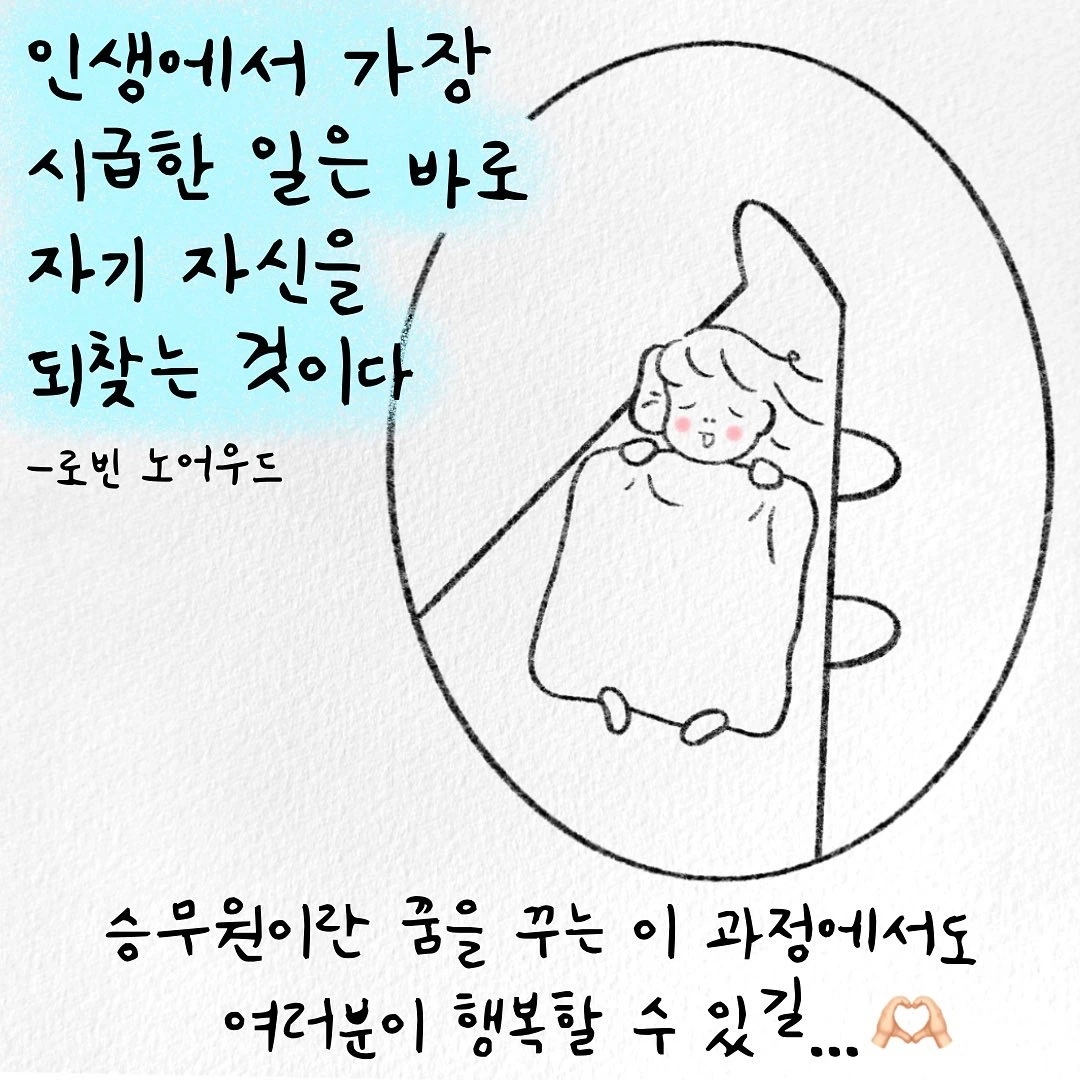 인생에서 가장
시급한 일은 바로
자기 자신을
되찾는 것이다
-로빈 노어우드
승무원이란 꿈을 꾸는 이 과정에서도
여러분이 행복할 수 있길...🫶🏻